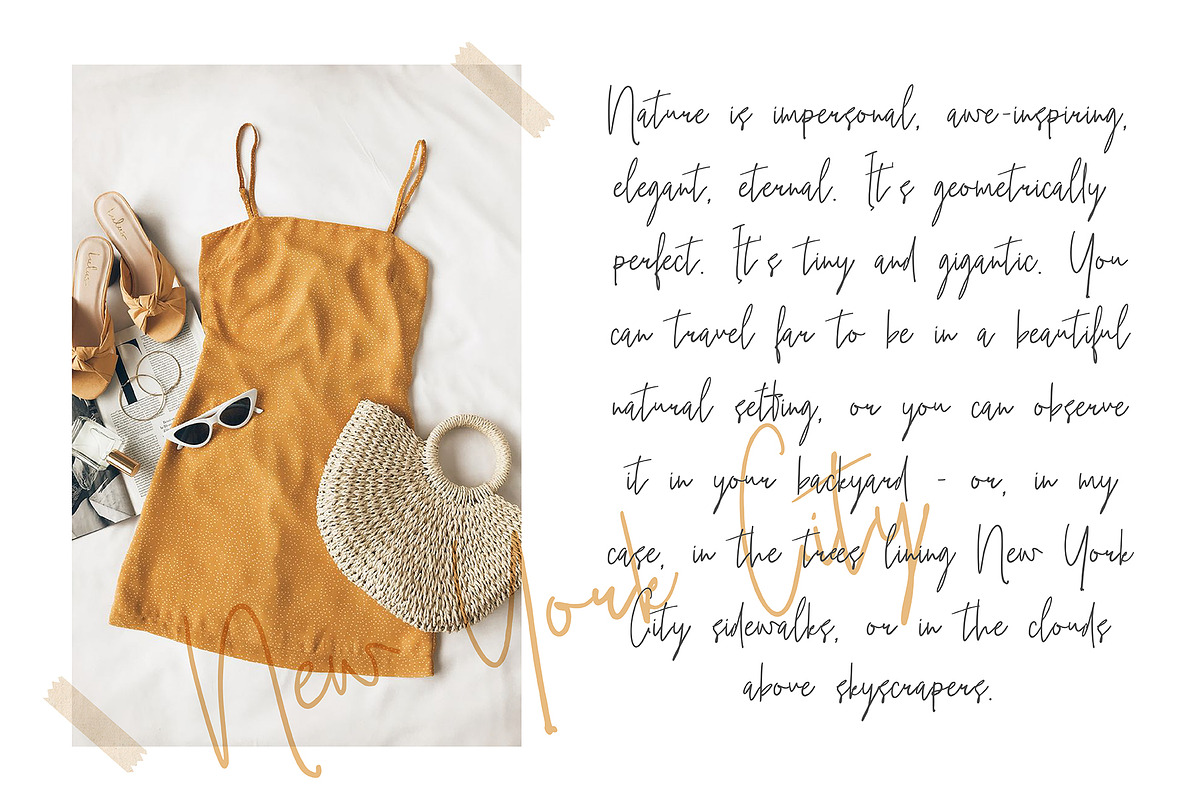 Nature is impersonal, awe-inspiring,
elegant, eternal. It's geometrically
perfect. It's tiny and gigantic. You
can travel far to be in a beautiful
natural setting, or you can observe
it in your backyard - or, in my
case, in the trees lining New York
City sidewalks, or in the clouds
above skyscrapers.
New York City